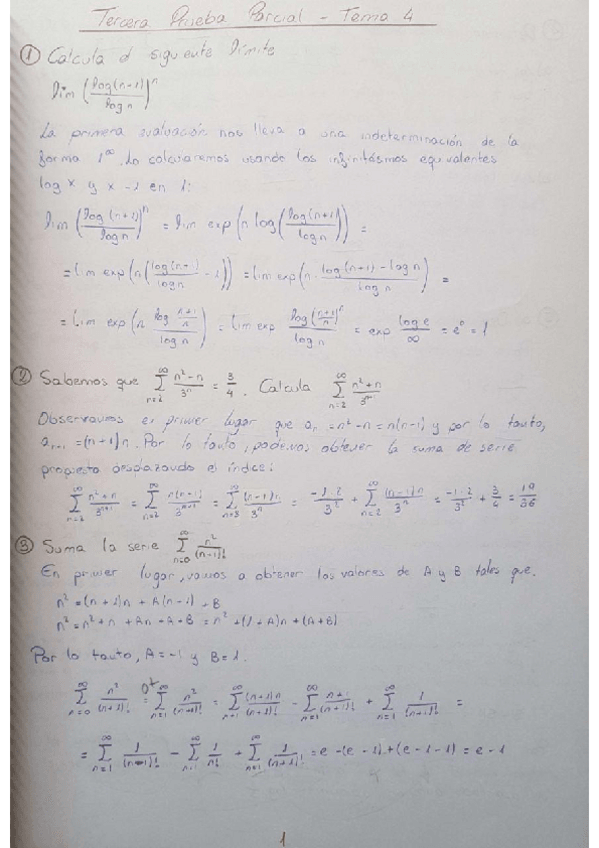 Tercera Prueba Parcial - Tema 4
① Calcula el siguiente límite
lim (log(n+1)/log n)^n
La primera evaluación nos lleva a una indeterminación de la
forma 1^∞. Lo calcularemos usando los infinitésimos equivalentes
log x y x-1 en 1:
lim (log(n+1)/log n)^n = lim exp(n log(log(n+1)/log n)) =
= lim exp(n(log(n+1)/log n - 1)) = lim exp(n · (log(n+1) - log n)/log n) =
= lim exp(n (log (n+1)/n)/log n) = lim exp (log((n+1)/n)^n)/log n = exp (log e)/∞ = e^0 = 1
② Sabemos que ∑_{n=2}^∞ (n²-n)/3^n = 3/4. Calcula ∑_{n=2}^∞ (n²+n)/3^{n+1}
Observamos en primer lugar que a_n = n²-n = n(n-1) y por lo tanto,
a_{n+1} = (n+1)n. Por lo tanto, podemos obtener la suma de serie
propuesta desplazando el índice:
∑_{n=2}^∞ (n²+n)/3^{n+1} = ∑_{n=2}^∞ n(n+1)/3^{n+1} = ∑_{n=3}^∞ (n-1)n/3^n = -1·2/3² + ∑_{n=2}^∞ (n-1)n/3^n = -1·2/3² + 3/4 = 19/36
③ Suma la serie ∑_{n=0}^∞ n²/(n+1)!
En primer lugar, vamos a obtener los valores de A y B tales que.
n² = (n+1)n + A(n+1) + B
n² = n² + n + An + A + B = n² + (1+A)n + (A+B)
Por lo tanto, A = -1 y B = 1.
∑_{n=0}^∞ n²/(n+1)! = 0 + ∑_{n=1}^∞ n²/(n+1)! = ∑_{n=1}^∞ (n+1)n/(n+1)! - ∑_{n=1}^∞ (n+1)/(n+1)! + ∑_{n=1}^∞ 1/(n+1)! =
= ∑_{n=1}^∞ 1/(n-1)! - ∑_{n=1}^∞ 1/n! + ∑_{n=1}^∞ 1/(n+1)! = e - (e-1) + (e-1-1) = e-1
1